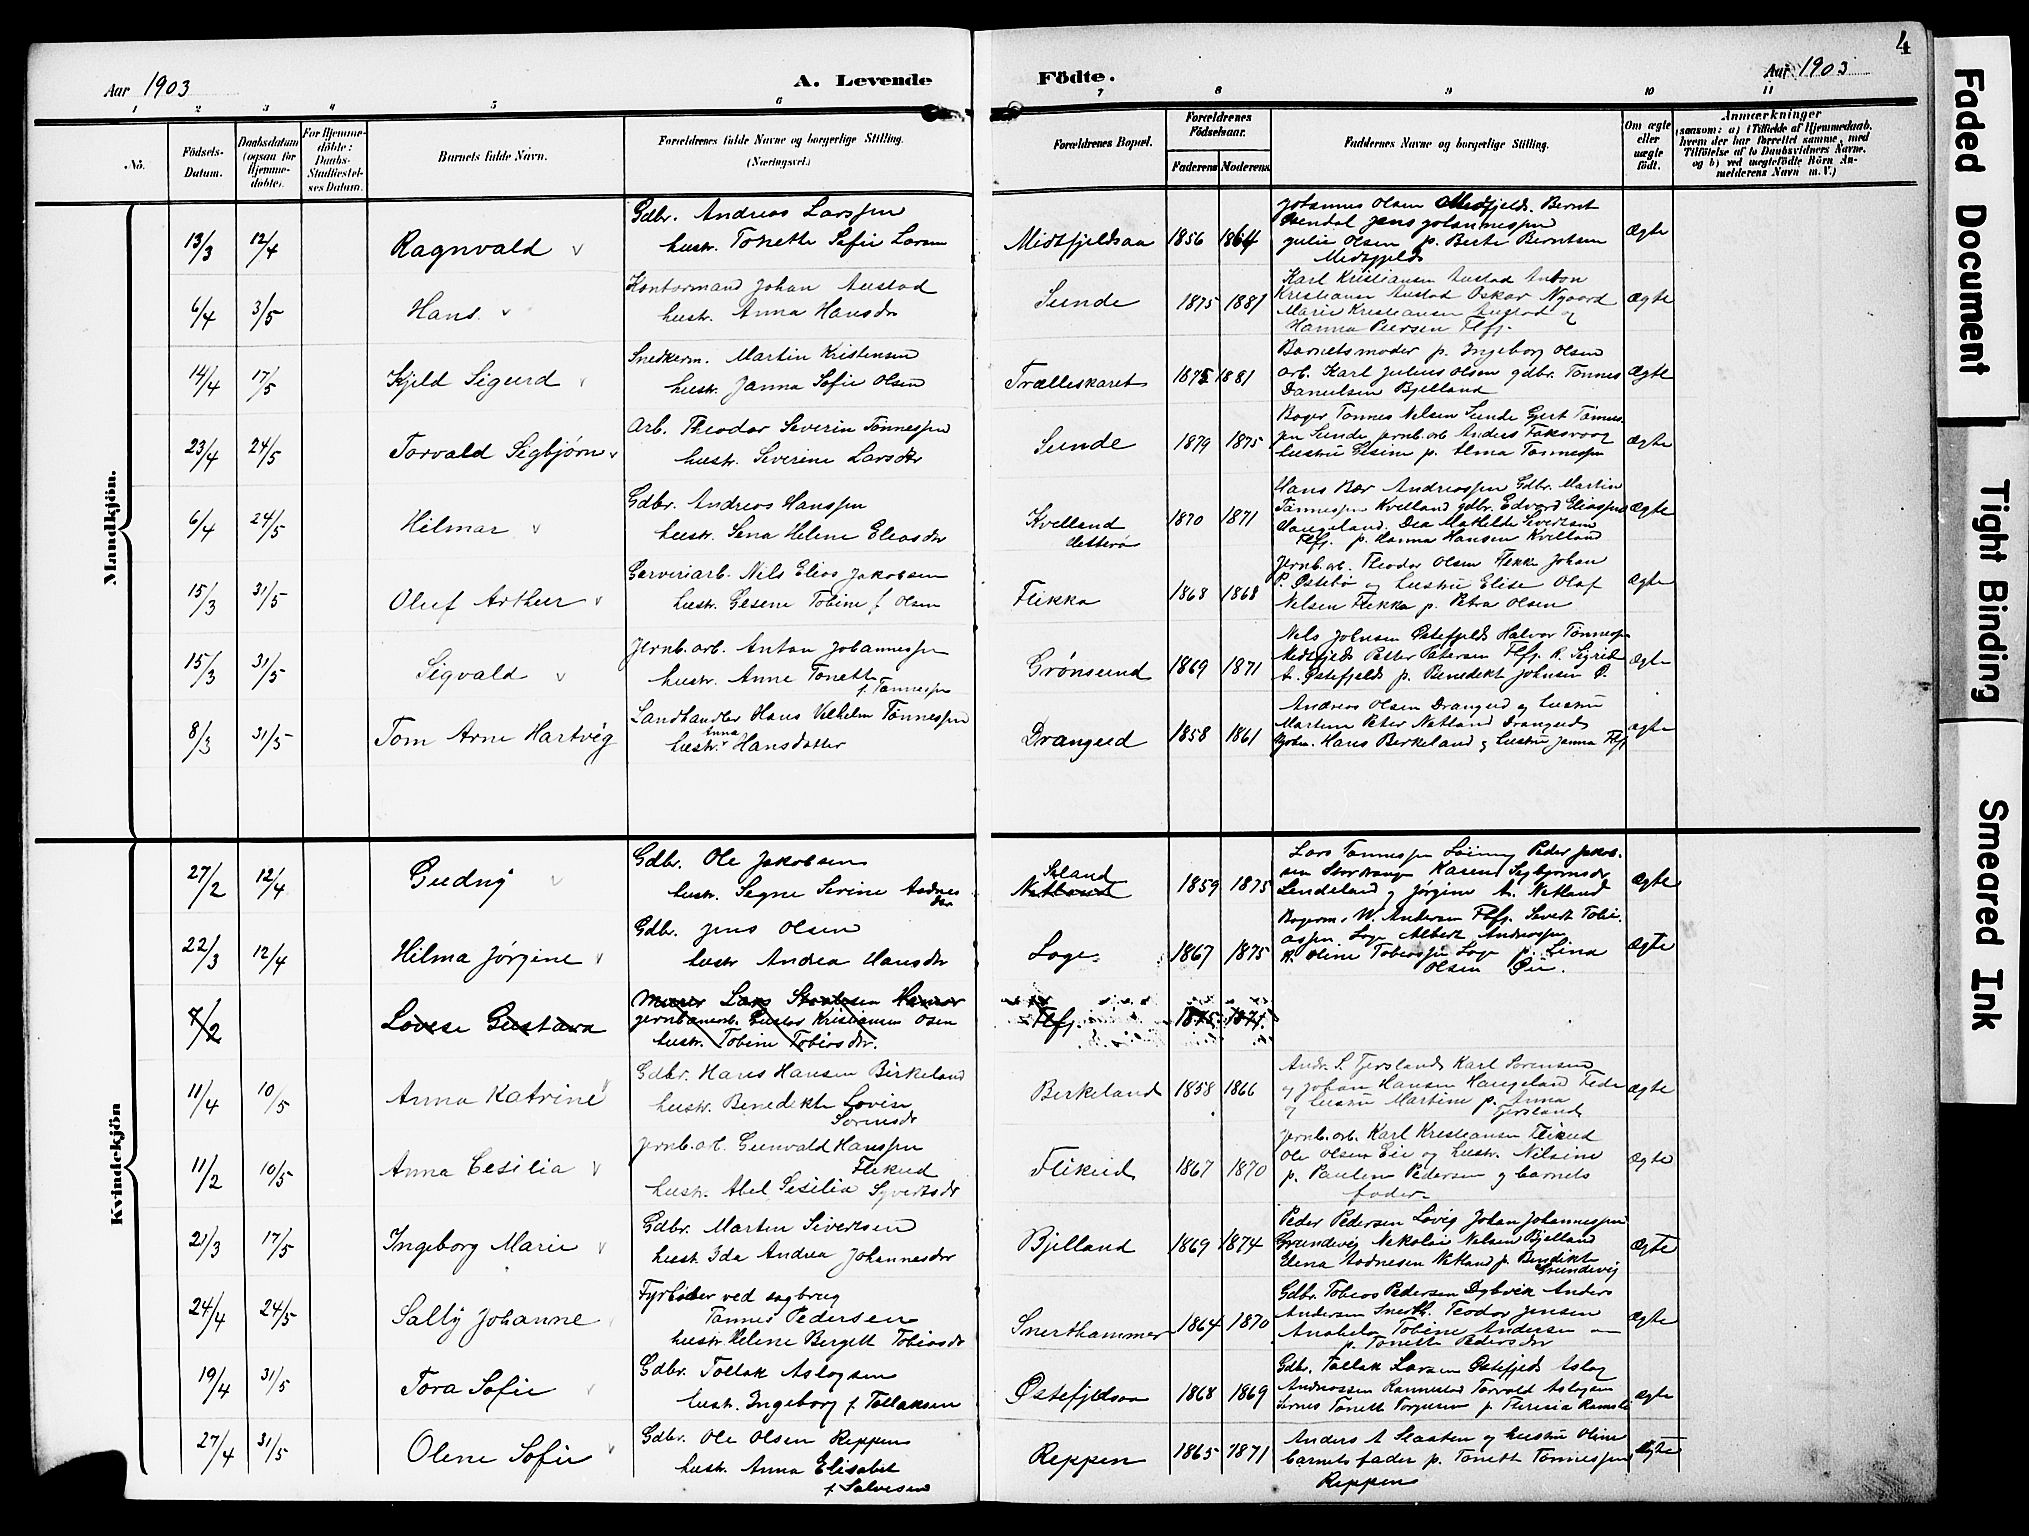 4
Aar 1903
A. Levende
Födte.
Aar 1903
1 2 3 4 5 6 7 8 9 10 11
No.
Födsels-
Datum.
Daabsdatum
(ogsaa for
Hjemme-
döbte).
For Hjemme-
döbte:
Daabs-
Stadfæstel-
ses Datum.
Barnets fulde Navn.
Forældrenes fulde Navne og borgerlige Stilling.
(Næringsvei.)
Forældrenes Bopæl.
Forældrenes
Födselsaar.
Faderens Moderens
Faddernes Navne og borgerlige Stilling.
Om ægte
eller
uægte
födt.
Anmærkninger
(saasom: a) i Tilfælde af Hjemmedaab,
hvem der har forrettet samme, med
Tilföielse af to Daabsvidners Navne,
og b) ved uægtefödte Börn An-
melderens Navn m. V.)
Mandkjön.
13/3 12/4 Ragnvald
Gdbr. Andreas Larssen
hustr. Tonette Sofie Larsen
Midtfjeldsaa 1856 1864
Johannes Olsen Midtfjeld. Bernt
Jens Johannessen
Julie Olsen p. Berte Berntsen
Midtfjeld
Ægte
6/4 3/5 Hans
Kontormand Johan Austad
hustr. Anna Hansdr
Sunde 1875 1881
Karl Kristiansen Austad Anton
Kristiansen Austad Oskar Nygaard
Marie Kristiansen Austad og
Hanna Peersen Flfj.
Ægte
14/4 17/5 Kjeld Sigurd
Snedkerm. Martin Kristensen
hustr. Janna Sofie Olsen
Trælleskaret 1875 1881
Barnetsmoder p. Ingeborg Olsen
arb. Karl Julius Olsen gdbr. Tønnes
Danielsen Bjelland
Ægte
23/4 24/5 Torvald Sigbjørn
Arb. Theodor Severin Tønnessen
hustr. Severine Larsdtr
Sunde 1879 1875
Bager Tønnes Nielsen Sunde Gert Tønnes-
sen Sunde jernb.arb. Anders Faksvaag
hustru Gesine p. Alma Tønnessen
Ægte
6/4 24/5 Hilmar
Gdbr. Andreas Hanssen
hustr. Sena Helene Eliasdr
Kvelland
Hitterø
1870 1871
Hans Bær Andreassen Gdbr. Martin
Tønnessen Kvelland gdbr. Edvard Eliassen
Haugeland. Dea Mathilde Sivertsen
Flfj. p. Hanna Hansen Kvelland
Ægte
15/3 31/5 Oluf Arthur
Garveriarb. Nils Elias Jakobsen
hustr. Gesene Tobine f. Olsen
Flikka 1868 1868
Jernb.arb. Theodor Olsen Flikke Johan
P. Østebø og hustru Elise Olaf
Nelsen Flikka p. Petra Olsen
Ægte
15/3 31/5 Sigvald
Jernb. arb. Anton Johannessen
hustr. Anne Tonette
f. Tønnessen
Grønsund 1869 1871
Nils Johnsen Østefjeld Halvor Tønnessen
Midtfjeld Petter Petersen Flfj. R. Sigrid
A. Østefjeld p. Benedikte Johnsen Ø.
Ægte
8/3 31/5 Tom Arne Hartvig
Landhandler Hans Vilhelm Tønnessen
hustr. Anna Hansdatter
Drangeid 1858 1861
Andreas Olsen Drangeid og hustru
Martine Peter Netland Drangeid
Hans Birkeland og hustru Janna Flfj
ægte
Kvindekjön
27/2 12/4 Gudny
Gdbr. Ole Jakobsen
hustr. Segne Serine Aadnes
dtr
Netland 1859 1875
Lars Tønnessen Peder Jakob-
sen Stordrange Karen Segbjørnsdr
Lindeland og Jørgine A. Netland
Ægte
22/3 12/4 Hilma Jørgine
Gdbr. Jens Olsen
hustr Andrea Hansdr
Loge 1867 1875
Bagerm. W. Andersen Flfj. Severt Tobi-
assen Loge Albert Andreassen
A. Oline Tobiassen Loge p. Lina
Olsen Øie.
Ægte
7/2 Lovise Gustava
Murer Lars
jernbanearb. Gustav Kristiansen Osen
hustr. Tobine Tobiasdr.
Flfj. 1875 1871.
11/4 10/5 Anna Katrine
Gdbr. Hans Hansen Birkeland
hustr. Benedikte Lovise
Sørensdr
Birkeland 1858 1866
Andr. S. Gjersland Karl Sørensen
og Johan Hansen Haugeland Feda
og hustru Martine p. Anna
Gjersland
Ægte
11/2 10/5 Anna Cesilia
Jernb.arb. Gunvald Hanssen
Flikeid
hustr. Abel Sesilia Syvertsdr
Flikeid 1867 1870
Jernb. arb. Karl Kristiansen Flikeid
Ole Olsen Eie og hustr. Nilsine
p. Pauline Pedersen og barnets
fader
Ægte
21/3 17/5 Ingeborg Marie
Gdbr. Marten Sivertsen
hustr Ida Andrea Johannesdtr
Bjelland 1869 1874
Peder Pedersen Lovig Johan Johannessen
Grundevig Nekolai Nelsen Bjelland
Elena Aadnesen Netland p. Bendikte
Grundevig
Ægte
24/4 24/5 Sally Johanne
Fyrbøter ved sagbrug
Tønnes Pedersen
hustr Helene Bergitte Tobiasdr
Snerthammer 1864 1870
Gdbr. Tobias Pedersen Dybvik Anders
Andersen Snerth. Teodor Jensen
Anabeløe Tobine Andersen
p. Tonette Pedersdtr
Ægte
19/4 31/5 Tora Sofie
Gdbr. Tollak Aslagsen
hustr. Ingeborg f. Tollaksen
Østefjeldsaa 1868 1869
Gdbr. Tollak Larsen Østefjeld Aslag
Andreassen Ramslad Torvald Aslagsen
Tonette Torgersen p. Theresia Ramsli
ægte
27/4 31/5 Olene Sofie
Gdbr. Ole Olsen Reppen
hustr. Anna Elisabet
f. Salvesen
Reppen 1865 1871
Anders A Slaaten og hustru Oline
barnets fader p. Tonette Tønnessen
Reppen
Ægte
Faded Document
Tight Binding
Smeared Ink